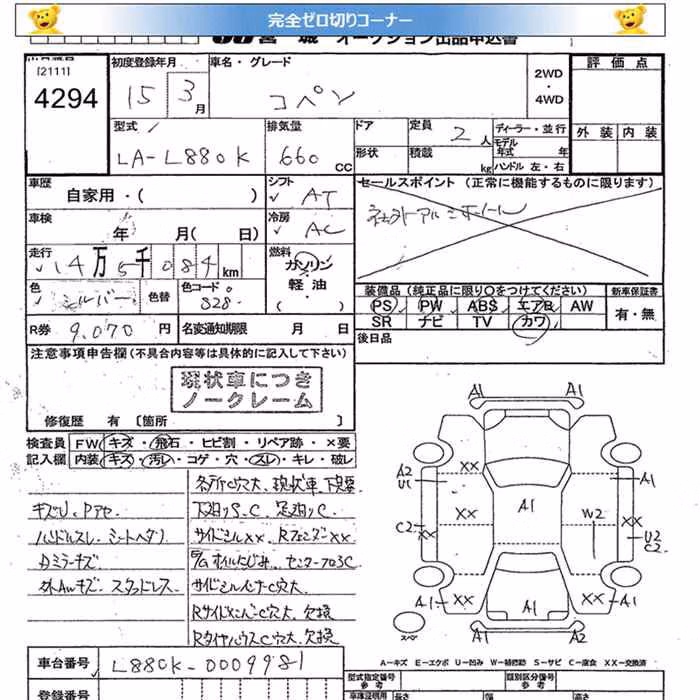 完全ゼロ切りコーナー
宮城 オークション出品申込書
[2111]
4294
初度登録年月
15 3月
車名・グレード
コペン
2WD
・
4WD
評価点
外装 内装
型式
LA-L880K
排気量
660 CC
ドア
形状
定員 2人
積載 kg
ディーラー・並行
モデル年式 年
ハンドル 左・右
車歴
自家用・( )
シフト
AT
セールスポイント (正常に機能するものに限ります)
車検
年 月( 日)
冷房
AC
走行
14万5千084km
燃料
ガソリン
軽油
・( )
色
シルバー
色替
色コード
S28
装備品(純正品に限り○をつけてください)
PS PW ABS エアB AW
SR ナビ TV カワ
新車保証書
有・無
R券 9,070円
名変通知期限 月 日
後日品
注意事項申告欄(不具合内容等は具体的に記入して下さい)
現状車につき
ノークレーム
修復歴 有〔箇所 〕
検査員
記入欄
FW キズ・飛石・ヒビ割・リペア跡・×要
内装 キズ・汚レ・コゲ・穴・スレ・キレ・破レ
各所C穴大、現状車、下見要
キズU、Pアセ
下廻りS、C、足廻りC
ハンドルスレ、シートヘタリ
サイドシルXX、RフェンダXX
Aミラーキズ
外AWキズ、スタッドレス
サイドシルインナーC穴大
RサイドメンバーC穴大、欠損
RタイヤハウスC穴大、欠損
A1
A1
XX
A2
U1
A1
A1
XX
W2
XX
C2
XX
U2
C2
A1
XX
A1
XX
A1
スペア
A1
A2
A-キズ E-エクボ U-凹み W-補修跡 S-サビ C-腐食 XX-交換済
車台番号
L880K-0009981
登録番号
型式指定番号
参考
類別区分番号
参考
車庫証明用
参考
長さ
幅
高さ